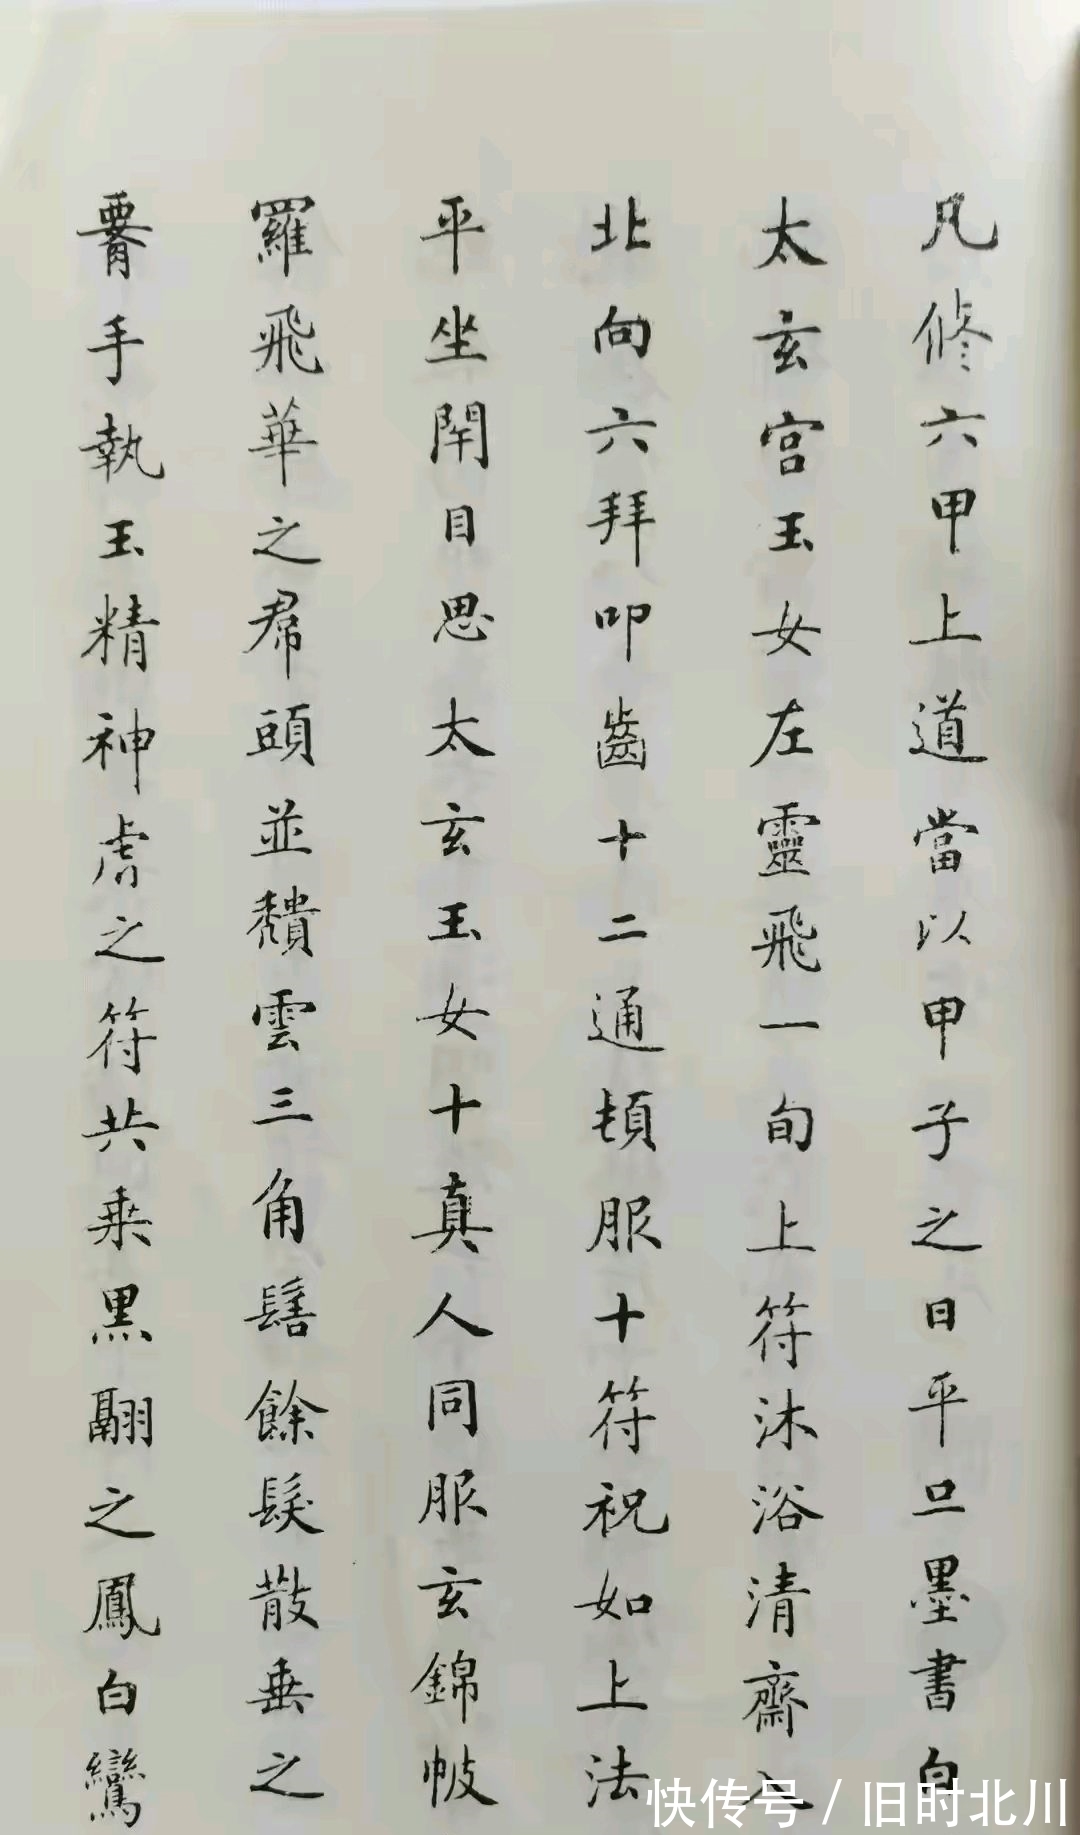 凡修六甲上道當以甲子之日平旦墨書白
太玄宫玉女左靈飛一旬上符沐浴清齋入
北向六拜叩齒十二通頓服十符祝如上法
平坐閇目思太玄玉女十真人同服玄錦帔
羅飛華之帬頭並頹雲三角髻餘髮散垂之
要手執玉精神虎之符共乘黑翮之鳳白鸞
快传号 / 旧时北川